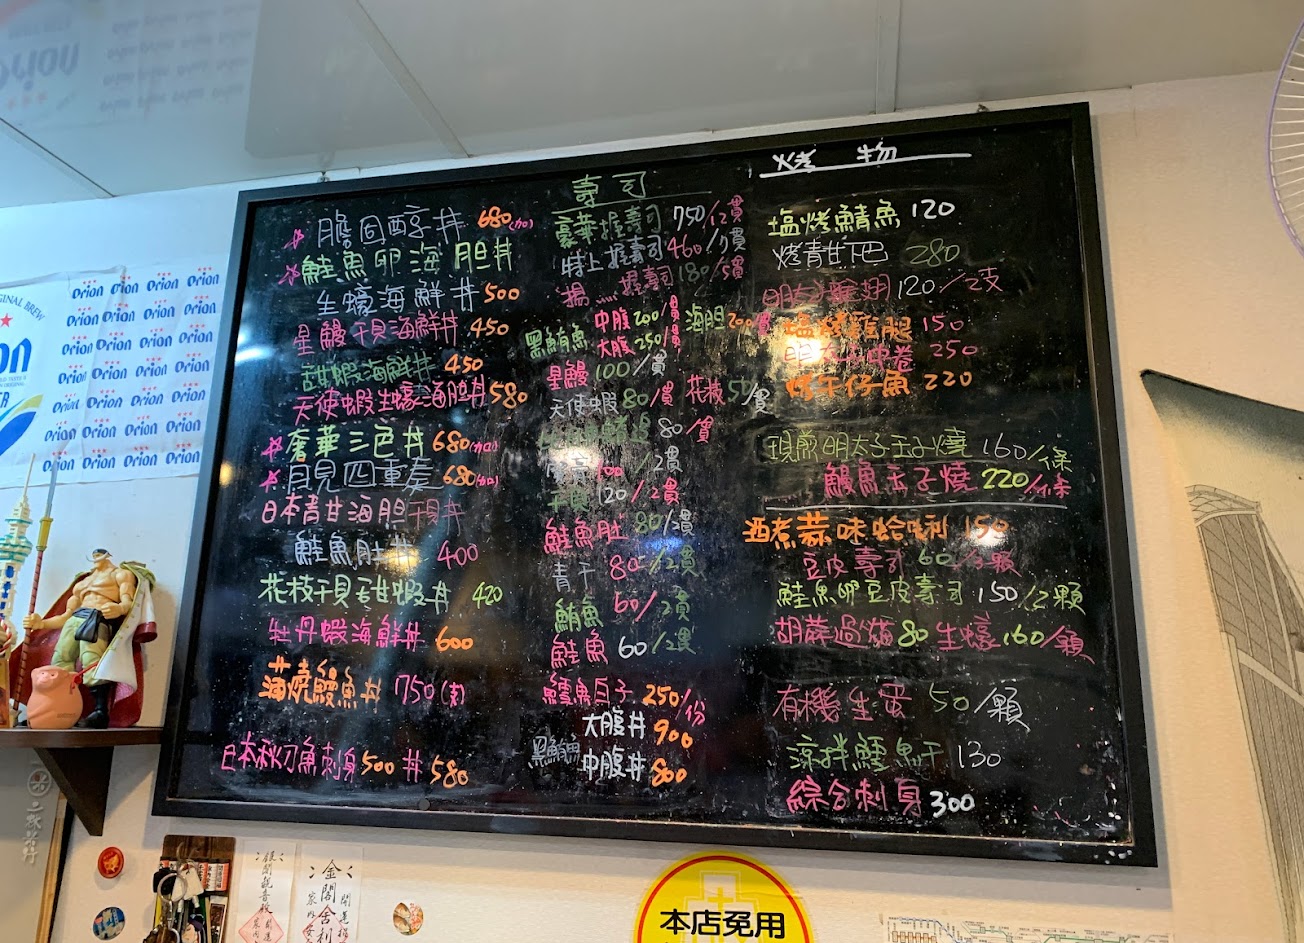 膽固醇丼 680(加)
鮭魚卵海胆丼
生蠔海鮮丼 500
星鰻干貝海鮮丼 450
甜蝦海鮮丼 450
天使蝦生蠔海胆丼 580
奢華三色丼 680(加)
月見四重奏 680(加)
日本青甘海胆干貝丼
鮭魚肚丼 400
花枝干貝甜蝦丼 420
牡丹蝦海鮮丼 600
蒲燒鰻魚丼 750
日本秋刀魚刺身 500 丼 580
壽司
豪華握壽司 750/12貫
特上握壽司 460/7貫
握壽司 180/5貫
黑鮪魚 中腹 200/貫 海胆 200
大腹 250/貫
星鰻 100/貫
天使蝦 80/貫 花枝 50/貫
80/貫
100/2貫
干貝 120/2貫
鮭魚肚 80/2貫
青干 80/2貫
鮪魚 60/2貫
鮭魚 60/2貫
鱈魚白子 250/份
黑鮪魚 大腹丼 900
中腹丼 800
烤物
塩烤鯖魚 120
烤青甘下巴 280
明太子雞翅 120/2支
塩烤雞腿 150
明太子中卷 250
烤午仔魚 220
現煎明太子玉子燒 160/條
鰻魚玉子燒 220/條
酒煮蒜味蛤蜊 150
豆皮壽司 60/顆
鮭魚卵豆皮壽司 150/2顆
胡蔴過貓 80 生蠔 160/顆
有機生蛋 50/顆
涼拌鱈魚干 130
綜合刺身 300
Orion
ORIGINAL BREW
本店免用
銀閣観音
金閣舍利
開運招